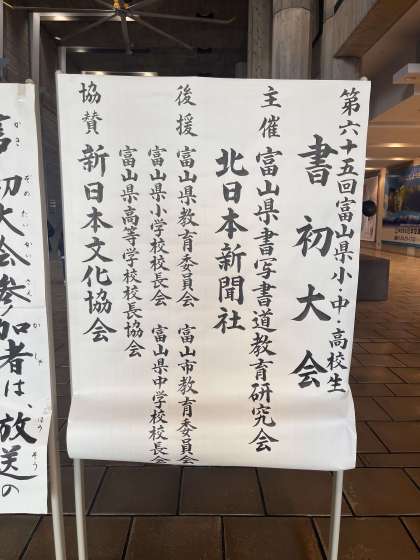 第六十五回富山県小・中・高校生
書初大会
主催 富山県書写書道教育研究会
北日本新聞社
後援 富山県教育委員会 富山市教育委員会
富山県小学校校長会 富山県中学校校長会
富山県高等学校校長協会
協賛 新日本文化協会
書初大会参加者は、放送の
かき ぞめ たい かい さん か しゃ ほう そう